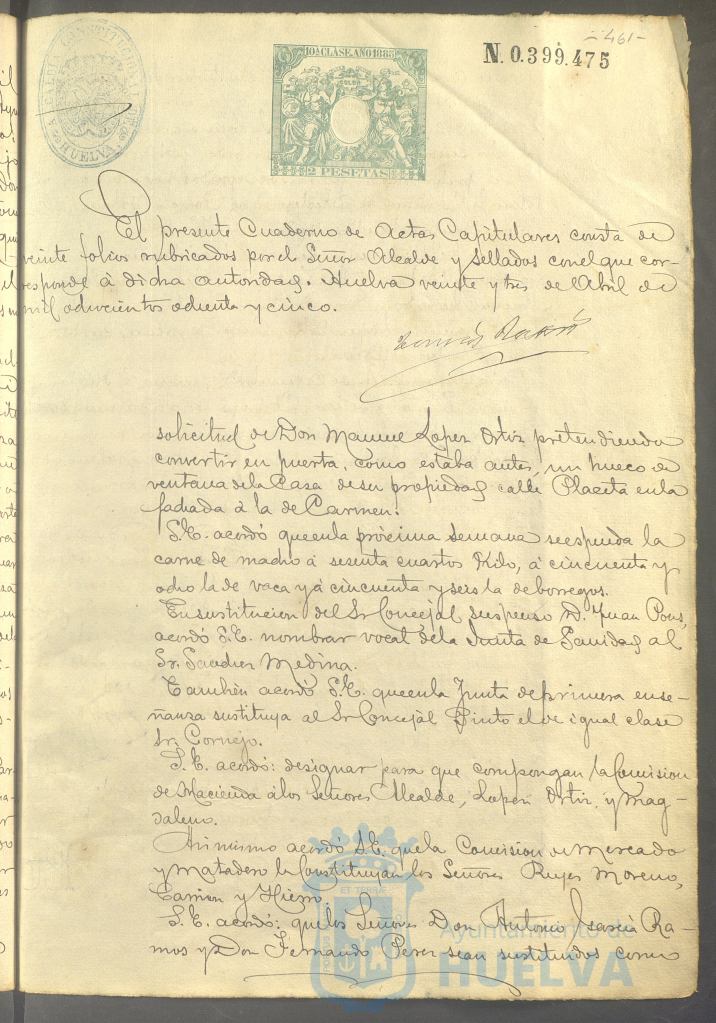 -461-
N. 0.399.475
ALCALDIA CONSTITUCIONAL DE HUELVA
10ª CLASE. AÑO 1885
2 PESETAS
El presente Cuaderno de Actas Capitulares consta de
veinte folios rubricados por el Señor Alcalde y sellados con el que cor-
responde á dicha autoridad. Huelva veinte y tres de Abril de
mil ochocientos ochenta y cinco.
solicitud de Don Manuel Lopez Ortiz pretendiendo
convertir en puerta, como estaba antes, un hueco de
ventana de la Casa de su propiedad calle Placeta en la
fachada á la de Carmen.
S.E. acordó que en la próxima semana se espenda la
carne de macho á sesenta cuartos Kilo, á cincuenta y
ocho la de vaca y á cincuenta y seis la de borregos.
En sustitucion del Sr Concejal suspenso D. Juan Pons,
acordó S.E. nombrar vocal de la Junta de Sanidad al
Sr. Sanchez Medina.
También acordó S.E. que en la Junta de primera ense-
ñanza sustituya al Sr Concejal Pinto el de igual clase
Sr. Cornejo.
S.E. acordó: designar para que compongan la Comision
de Hacienda á los Señores Alcalde, Lopez Ortiz y Mag-
daleno.
Asi mismo acordó S.E. que la Comision de Mercado
y Matadero la Constituyan los Señores Reyes Moreno,
Carrion y Hierro.
S.E. acordó: que los Señores Don Antonio Garcia Ra-
mos y Don Fernando Perez sean sustituidos como
Ayuntamiento de
HUELVA